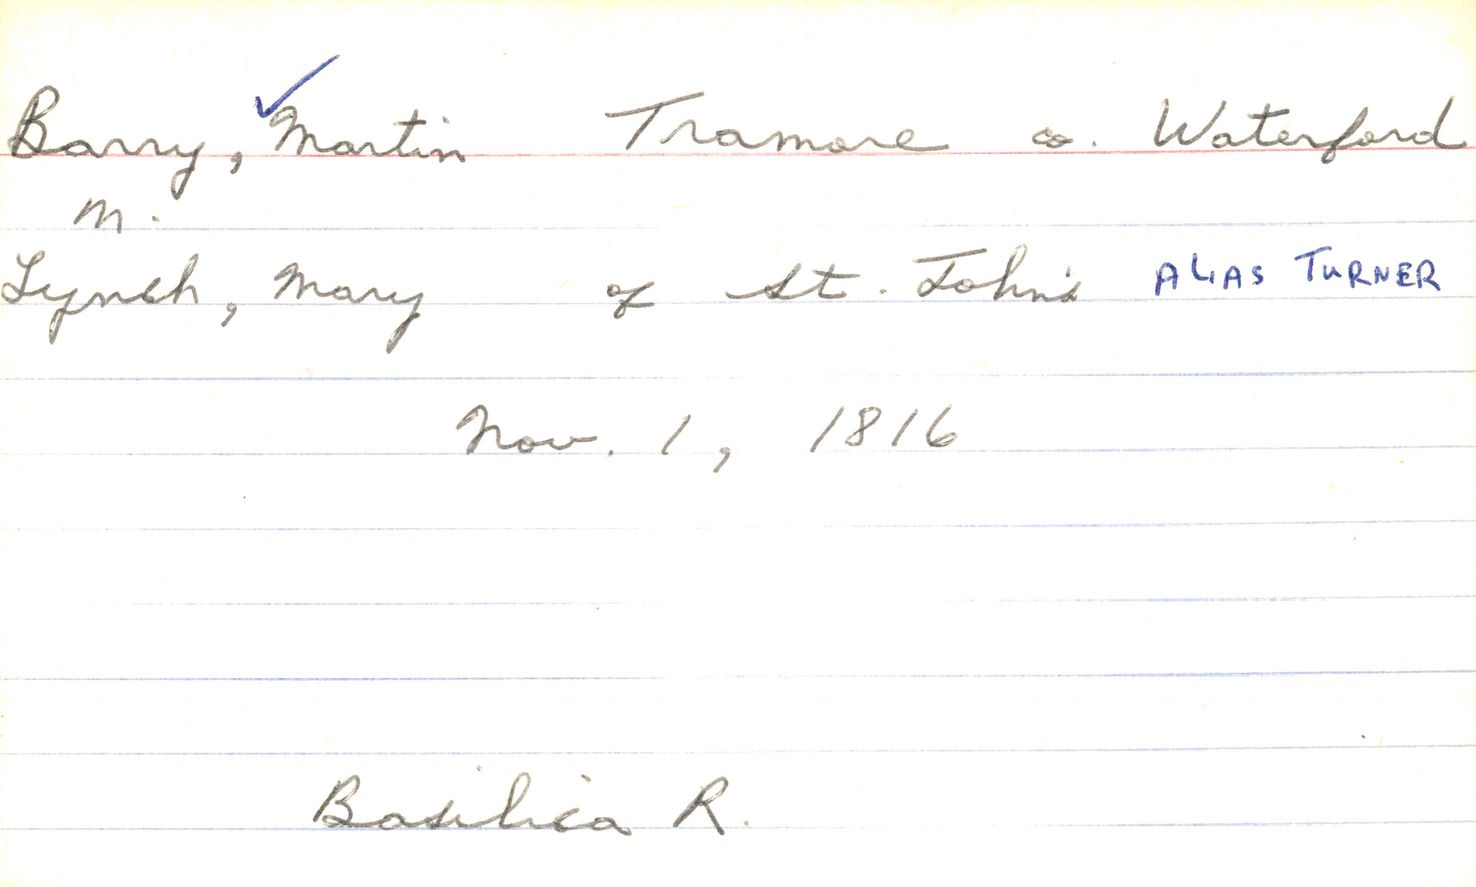 Barry, Martin Tramore co. Waterford
m.
Lynch, Mary of St. John's ALIAS TURNER
Nov. 1, 1816
Basilica R.